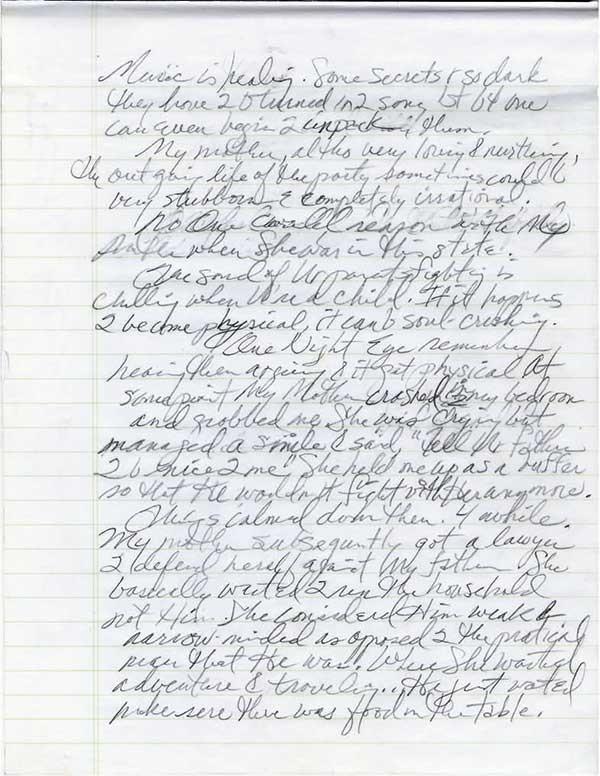 Music is healing. Some secrets r so dark
they have 2 b turned in 2 song 1st b4 one
can even begin 2 unpack them.
My mother, altho very loving & nurturing,
the outgoing life of the party sometimes could b
very stubborn & completely irrational.
No one could reason with My
Mother when She was in this state.
The sound of Ur parents fighting is
chilling when U r a child. If it happens
2 become physical, it can b soul-crushing.
One Night Eye remember
hearing them arguing & it got physical. At
some point My Mother crashed in2 my bedroom
and grabbed me. She was crying but
managed a smile & said, "Tell Ur Father
2 b nice 2 me" She held me up as a buffer
so that He wouldn't fight with her anymore.
Things calmed down then. 4 awhile.
My mother subsequently got a lawyer
2 defend herself against My Father. She
basically wanted 2 run the household
not Him. She considered Him weak &
narrow-minded as opposed 2 the pratical
man that He was. Where She wanted
adventure & traveling.. He just wanted
make sure there was food on the table.